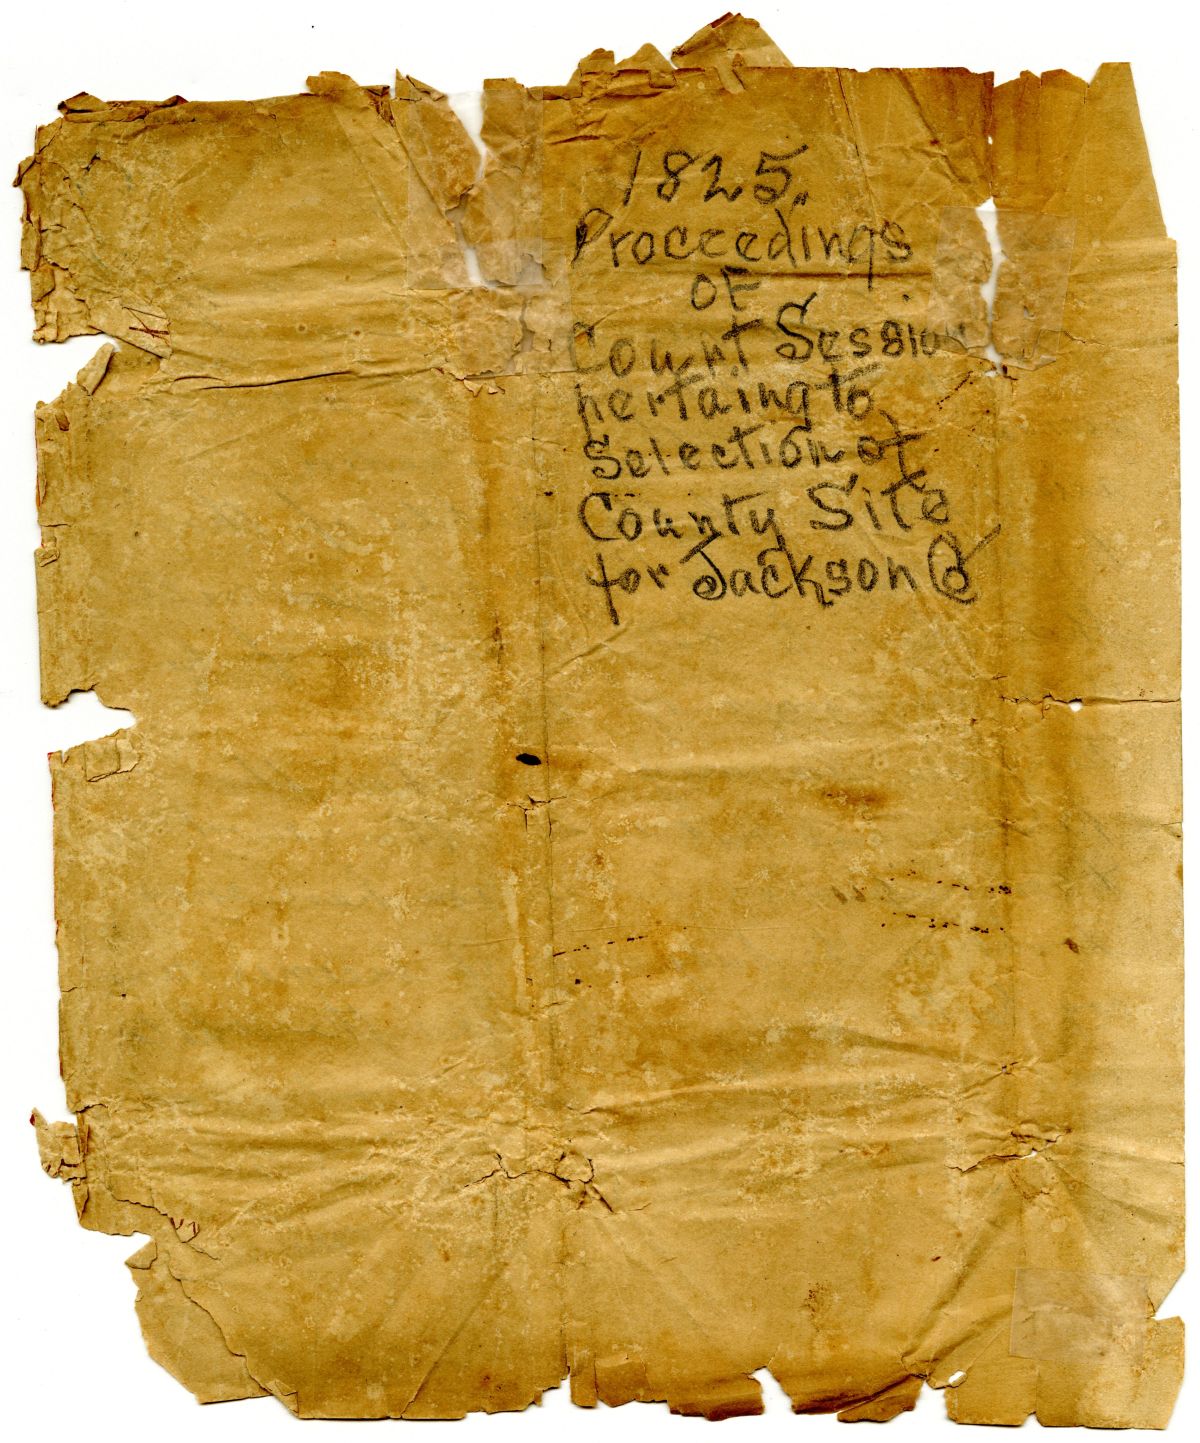 1825.
Proceedings
OF
Court Session
pertaing to
Selection of
County Site
for Jackson Co